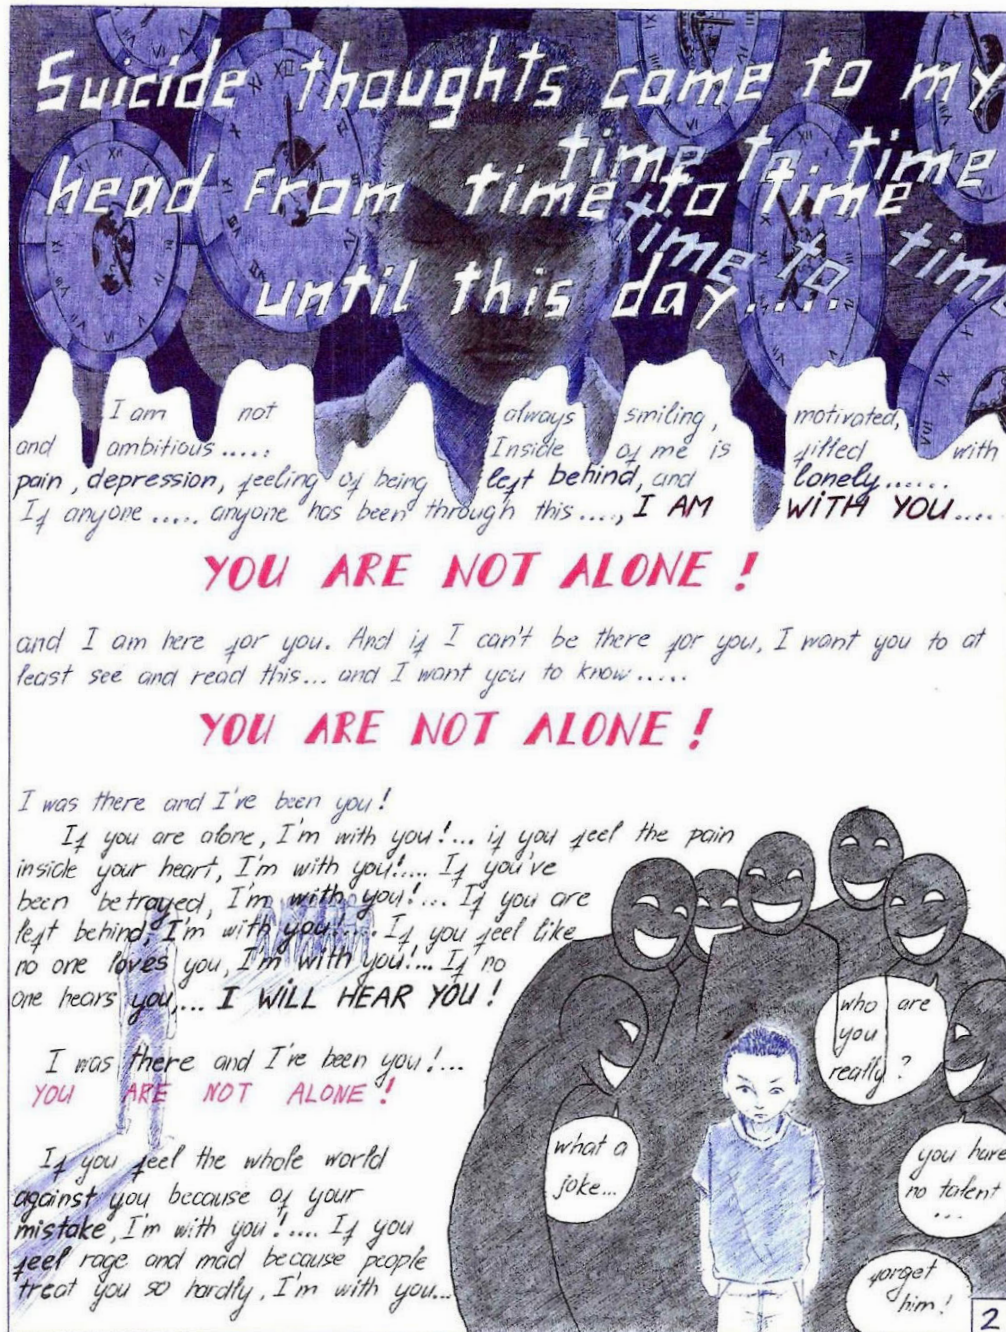 Suicide thoughts come to my
time to time
head from time to time
time to time
until this day.....
I am not always smiling, motivated,
and ambitious..... Inside of me is filled with
pain, depression, feeling of being left behind, and lonely......
If anyone ..... anyone has been through this...., I AM WiTH YOU.....
YOU ARE NOT ALONE !
and I am here for you. And if I can't be there for you, I want you to at
least see and read this... and I want you to know.....
YOU ARE NOT ALONE !
I was there and I've been you!
If you are alone, I'm with you!... if you feel the pain
inside your heart, I'm with you!.... If you've
been betrayed, I'm with you!... If you are
left behind, I'm with you!.... If you feel like
no one loves you, I'm with you!... If no
one hears you,... I WiLL HEAR YOU!
I was there and I've been you!...
YOU ARE NOT ALONE!
If you feel the whole world
against you because of your
mistake, I'm with you!.... If you
feel rage and mad because people
treat you so hardly, I'm with you...
who are
you
really?
what a
joke...
you have
no talent
...
forget
him!
2